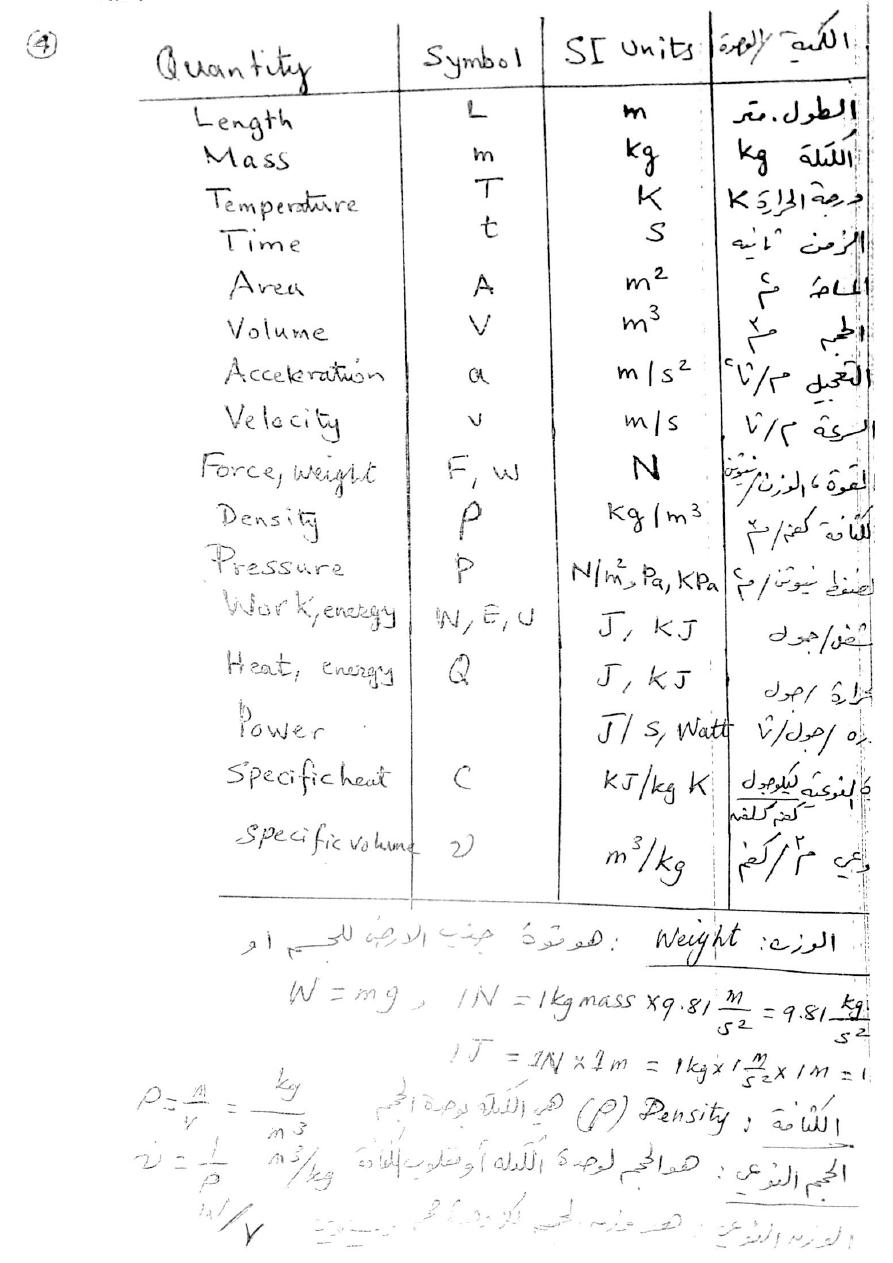 4
Quantity Symbol SI Units الكمية / الوحدة
Length L m الطول. متر
Mass m kg الكتلة kg
Temperature T K درجة الحرارة K
Time t s الزمن ثانيه
Area A m² المساحة م٢
Volume V m³ الحجم م٣
Acceleration a m/s² التعجيل م/ثا٢
Velocity v m/s السرعة م/ثا
Force, weight F, W N القوة، الوزن/نيوتن
Density ρ kg/m³ كثافة كغم/م٣
Pressure P N/m², Pa, KPa ضغط نيوتن/م٢
Work, energy W, E, U J, KJ شغل/جول
Heat, energy Q J, KJ حرارة /جول
Power J/s, Watt /جول/ثا
Specific heat C KJ/kg K النوعية كيلوجول
كغم كلفن
Specific volume v m³/kg وعي م٣/كغم
الوزن: Weight : هو قوة جذب الارض للجسم او
W = mg , 1N = 1kg mass x 9.81 m/s² = 9.81 kg/s²
1J = 1N x 1m = 1kg x 1 m/s² x 1m = 1
الكثافة : Density (ρ) هي الكتلة لوحدة الحجم ρ = m/v = kg/m³
الحجم النوعي : هو الحجم لوحدة الكتله أو مقلوب الكثافة m³/kg v = 1/ρ
الوزن النوعي : هو وزن الجسم لكل وحدة حجم W/V